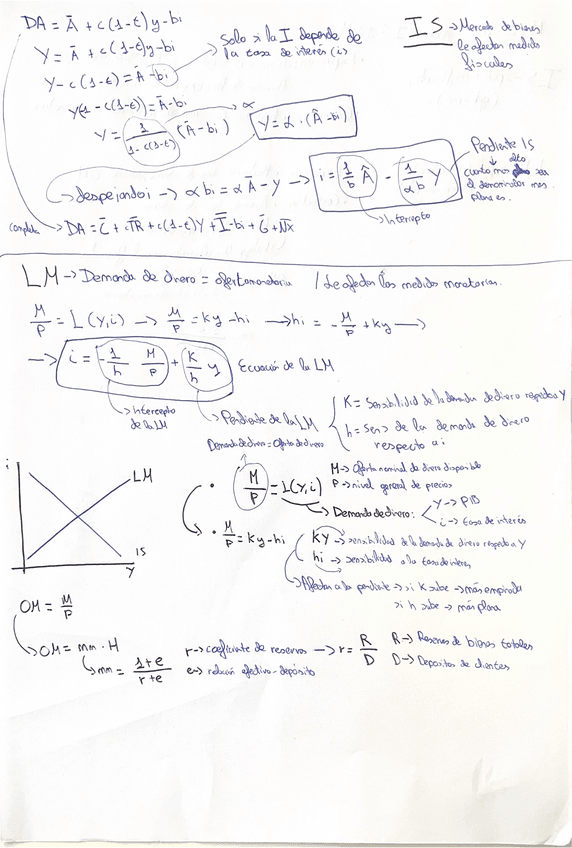 DA = Ā + c(1-t)y - bi
Solo si la I depende de la tasa de interés (i)
IS → Mercado de bienes
le afectan medidas fiscales
Y = Ā + c(1-t)y - bi
Y - c(1-t) = Ā - bi
Y(1 - c(1-t)) = Ā - bi
α
Y = 1/(1-c(1-t)) (Ā - bi)
Y = α · (Ā - bi)
Pendiente IS
cuanto más alto sea el denominador más plana es.
→ despejando i → αbi = αĀ - Y → i = 1/b Ā - 1/αb Y
→ Intercepto
completa → DA = C̄ + cTR + c(1-t)Y + Ī - bi + Ḡ + N̄x
LM → Demanda de dinero = oferta monetaria / Le afectan las medidas monetarias.
M/P = L(Y,i) → M/P = ky - hi → hi = - M/P + ky →
→ i = - 1/h M/P + k/h y Ecuación de la LM
→ Intercepto de la LM
→ Pendiente de la LM
K = Sensibilidad de la demanda de dinero respecto a Y
h = Sens de la demanda de dinero respecto a i
Demanda de dinero = Oferta de dinero
i
LM
IS
Y
• M/P = L(Y,i)
M → Oferta nominal de dinero disponible
P → nivel general de precios
→ Demanda de dinero:
Y → PIB
i → tasa de interés
• M/P = ky - hi
ky → sensibilidad de la demanda de dinero respecto a Y
hi → sensibilidad a la tasa de interés
→ Afectan a la pendiente → si K sube → más empinada
→ si h sube → más plana
OM = M/P
→ OM = mm · H
→ mm = 1+e/r+e
r → coeficiente de reservas → r = R/D
R → Reservas de bienes totales
D → Depositos de clientes
e → relación efectivo-depósito